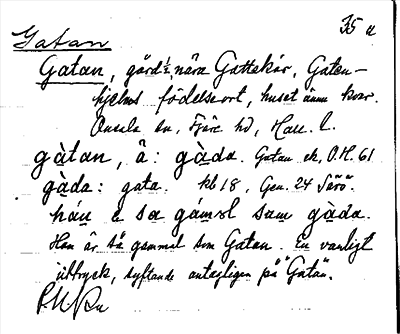 35 a
Gatan
Gatan, gård ½, nära Gottskär, Gaten-
hjelms födelseort, huset ännu kvar.
Onsala sn, Fjäre hd, Hall. l.
gàtan, å: gàda. Gatan ek. O.H. 61
gàda: gata. kb 18, Gen. 24 Särö.
hán e sa gáməl sum gàda.
Han är så gammal som Gatan. En vanligt
uttryck, syftande antagligen på "Gatan".